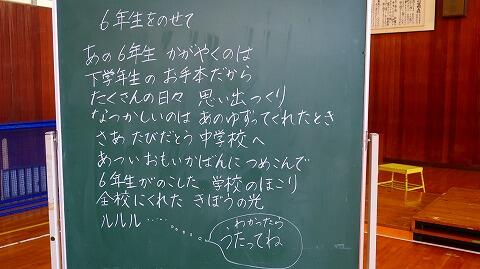 6年生をのせて
あの6年生 かがやくのは
下学年生の お手本だから
たくさんの日々 思い出つくり
なつかしいのは あのゆずってくれたとき
さあ たびだとう 中学校へ
あつい おもい かばんに つめこんで
6年生がのこした 学校のほこり
全校にくれた きぼうの光
ルルル・・・・・
わかったら
うたってね